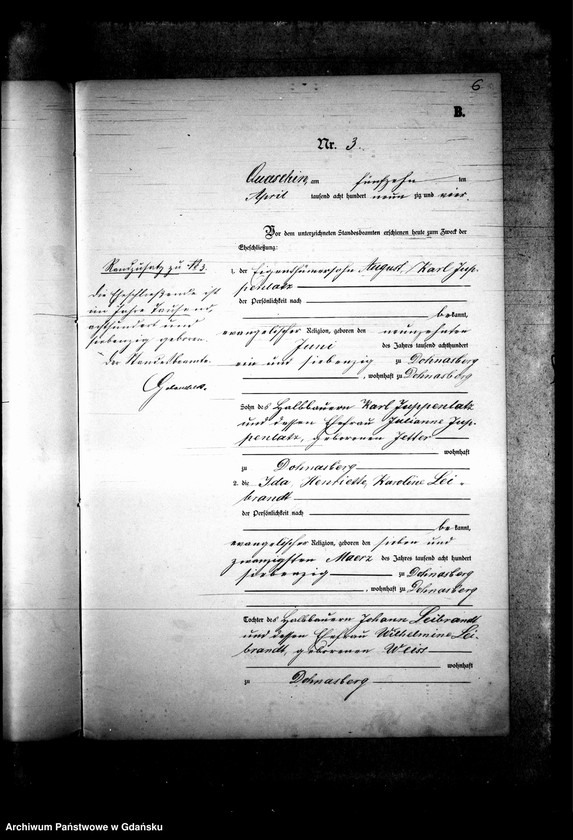 6
B.
Nr. 3.
Quaschin, am fünfzehn ten
April tausend acht hundert neun zig und vier.
Vor dem unterzeichneten Standesbeamten erschienen heute zum Zweck der
Eheschließung:
1. der Eigenthümersohn August, Karl Jup-
penlatz
der Persönlichkeit nach
bekannt,
evangelischer Religion, geboren den neunzehnten
Juni des Jahres tausend achthundert
ein und siebenzig zu Dohnasberg
, wohnhaft zu Dohnasberg
Sohn des Halbbauern Karl Juppenlatz
und dessen Ehefrau Julianne Jup-
penlatz, geborenen Jetter
wohnhaft
zu Dohnasberg
2. die Ida, Henriette, Karoline Lei-
brandt
der Persönlichkeit nach
bekannt,
evangelischer Religion, geboren den sieben und
zwanzigsten Maerz des Jahres tausend acht hundert
siebenzig zu Dohnasberg
, wohnhaft zu Dohnasberg
Tochter des Halbbauern Johann Leibrandt
und dessen Ehefrau Wilhelmine Lei-
brandt, geborenen Weiss
wohnhaft
zu Dohnasberg
Randzusatz zu No 3.
Die Eheschließende ist
im Jahre Tausend,
achthundert und
siebenzig geboren.
Der Standesbeamte.
Archiwum Państwowe w Gdańsku